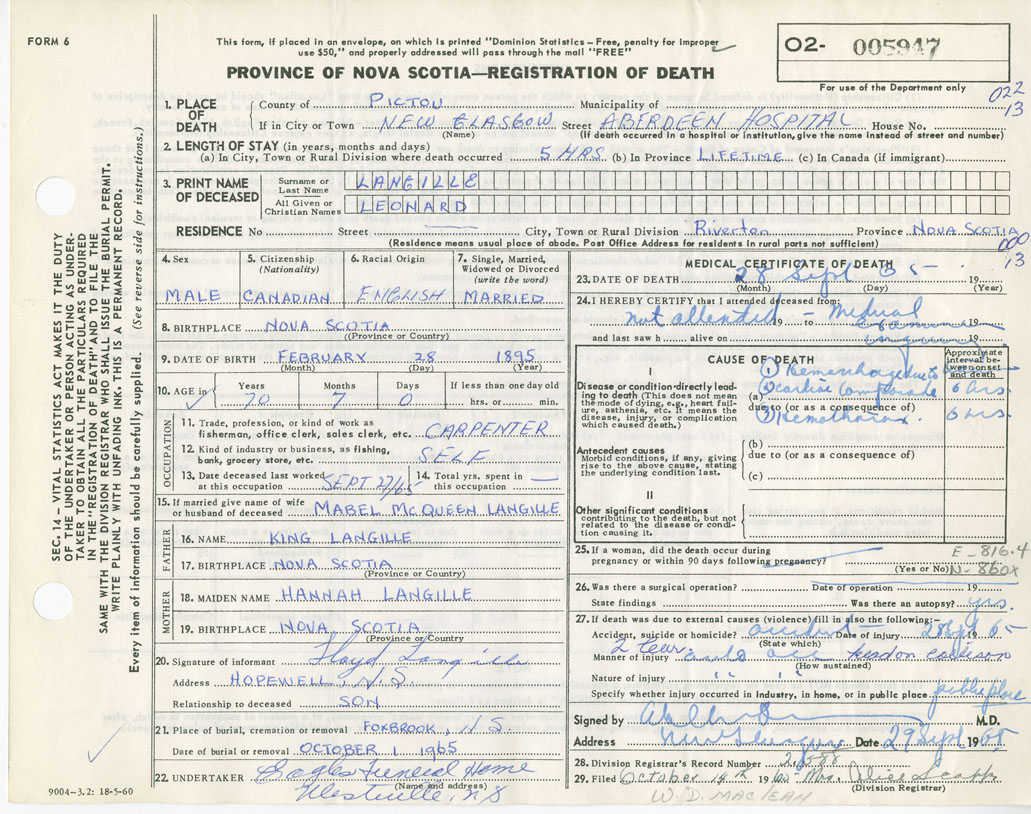 FORM 6
This form, if placed in an envelope, on which is printed "Dominion Statistics – Free, penalty for improper
use $50," and properly addressed will pass through the mail "FREE"
O2- 005947
PROVINCE OF NOVA SCOTIA—REGISTRATION OF DEATH
For use of the Department only
022
13
1. PLACE OF DEATH
County of PICTOU Municipality of
If in City or Town NEW GLASGOW Street ABERDEEN HOSPITAL House No.
(Name) (If death occurred in a hospital or institution, give the name instead of street and number)
2. LENGTH OF STAY (in years, months and days)
(a) In City, Town or Rural Division where death occurred 5 HRS (b) In Province LIFETIME (c) In Canada (if immigrant)
3. PRINT NAME OF DECEASED
Surname or Last Name LANGILLE
All Given or Christian Names LEONARD
RESIDENCE No Street City, Town or Rural Division Riverton Province NOVA SCOTIA
(Residence means usual place of abode. Post Office Address for residents in rural parts not sufficient)
000
13
4. Sex MALE
5. Citizenship (Nationality) CANADIAN
6. Racial Origin ENGLISH
7. Single, Married, Widowed or Divorced (write the word) MARRIED
8. BIRTHPLACE NOVA SCOTIA
(Province or Country)
9. DATE OF BIRTH FEBRUARY 28 1895
(Month) (Day) (Year)
10. AGE in Years 70 Months 7 Days 0 If less than one day old hrs. or min.
OCCUPATION
11. Trade, profession, or kind of work as
fisherman, office clerk, sales clerk, etc. CARPENTER
12. Kind of industry or business, as fishing,
bank, grocery store, etc. SELF
13. Date deceased last worked at this occupation SEPT 27/65
14. Total yrs. spent in this occupation —
15. If married give name of wife
or husband of deceased MABEL McQUEEN LANGILLE
FATHER
16. NAME KING LANGILLE
17. BIRTHPLACE NOVA SCOTIA
(Province or Country)
MOTHER
18. MAIDEN NAME HANNAH LANGILLE
19. BIRTHPLACE NOVA SCOTIA
(Province or Country
20. Signature of informant Floyd Langille
Address HOPEWELL, N.S.
Relationship to deceased SON
21. Place of burial, cremation or removal FOXBROOK, N S.
Date of burial or removal OCTOBER 1 1965
22. UNDERTAKER Eagles Funeral Home
(Name and address)
Westville, NS
9004-3.2: 18-5-60
MEDICAL CERTIFICATE OF DEATH
23. DATE OF DEATH 28 Sept 65 19
(Month) (Day) (Year)
24. I HEREBY CERTIFY that I attended deceased from:
not attended 19 to – medical
19
and last saw h alive on 19
CAUSE OF DEATH
Approximate interval between onset and death
I
① Hemorrhage due to
Disease or condition directly leading to death (This does not mean the mode of dying, e.g., heart failure, asthenia, etc. It means the disease, injury, or complication which caused death.)
(a) ② cardiac 6 hrs
due to (or as a consequence of)
③ Hemothorax. 6 hrs.
(b)
due to (or as a consequence of)
Antecedent causes
Morbid conditions, if any, giving rise to the above cause, stating the underlying condition last.
(c)
II
Other significant conditions
contributing to the death, but not related to the disease or condition causing it.
25. If a woman, did the death occur during
pregnancy or within 90 days following pregnancy?
(Yes or No)
E-816.4
N-860X
26. Was there a surgical operation? Date of operation 19
State findings Was there an autopsy? yes.
27. If death was due to external causes (violence) fill in also the following:-
Accident, suicide or homicide? accident Date of injury 28 Sept 65
(State which)
2 car
Manner of injury auto acc headon collision
(How sustained)
Nature of injury " " " "
Specify whether injury occurred in industry, in home, or in public place public place
Signed by M.D.
Address New Glasgow Date 29 Sept 1965
28. Division Registrar's Record Number
29. Filed October 14th 1965 Mrs. Alice
(Division Registrar)
W. D. MACLEAN
SEC. 14 – VITAL STATISTICS ACT MAKES IT THE DUTY
OF THE UNDERTAKER OR PERSON ACTING AS UNDER-
TAKER TO OBTAIN ALL THE PARTICULARS REQUIRED
IN THE "REGISTRATION OF DEATH" AND TO FILE THE
SAME WITH THE DIVISION REGISTRAR WHO SHALL ISSUE THE BURIAL PERMIT.
WRITE PLAINLY WITH UNFADING INK. THIS IS A PERMANENT RECORD.
Every item of information should be carefully supplied. (See reverse side for instructions.)